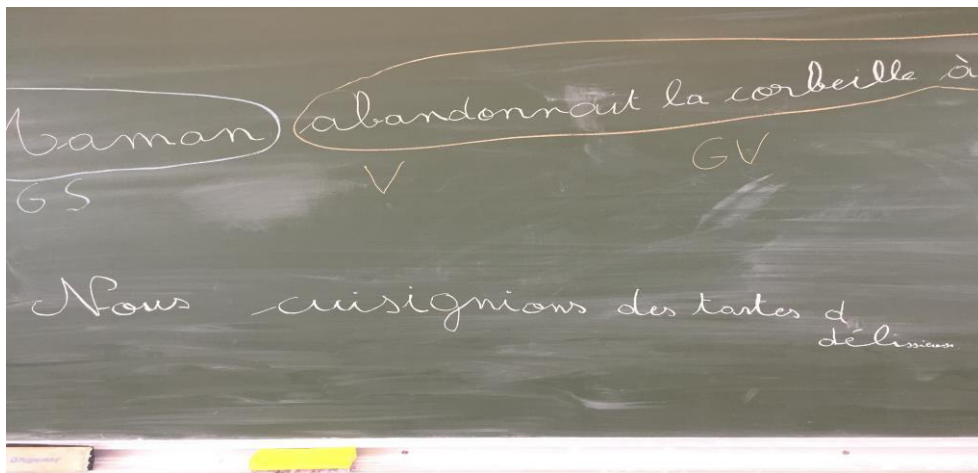 Maman abandonnait la corbeille à
GS V GV
Nous cuisignions des tartes d
délissieuse